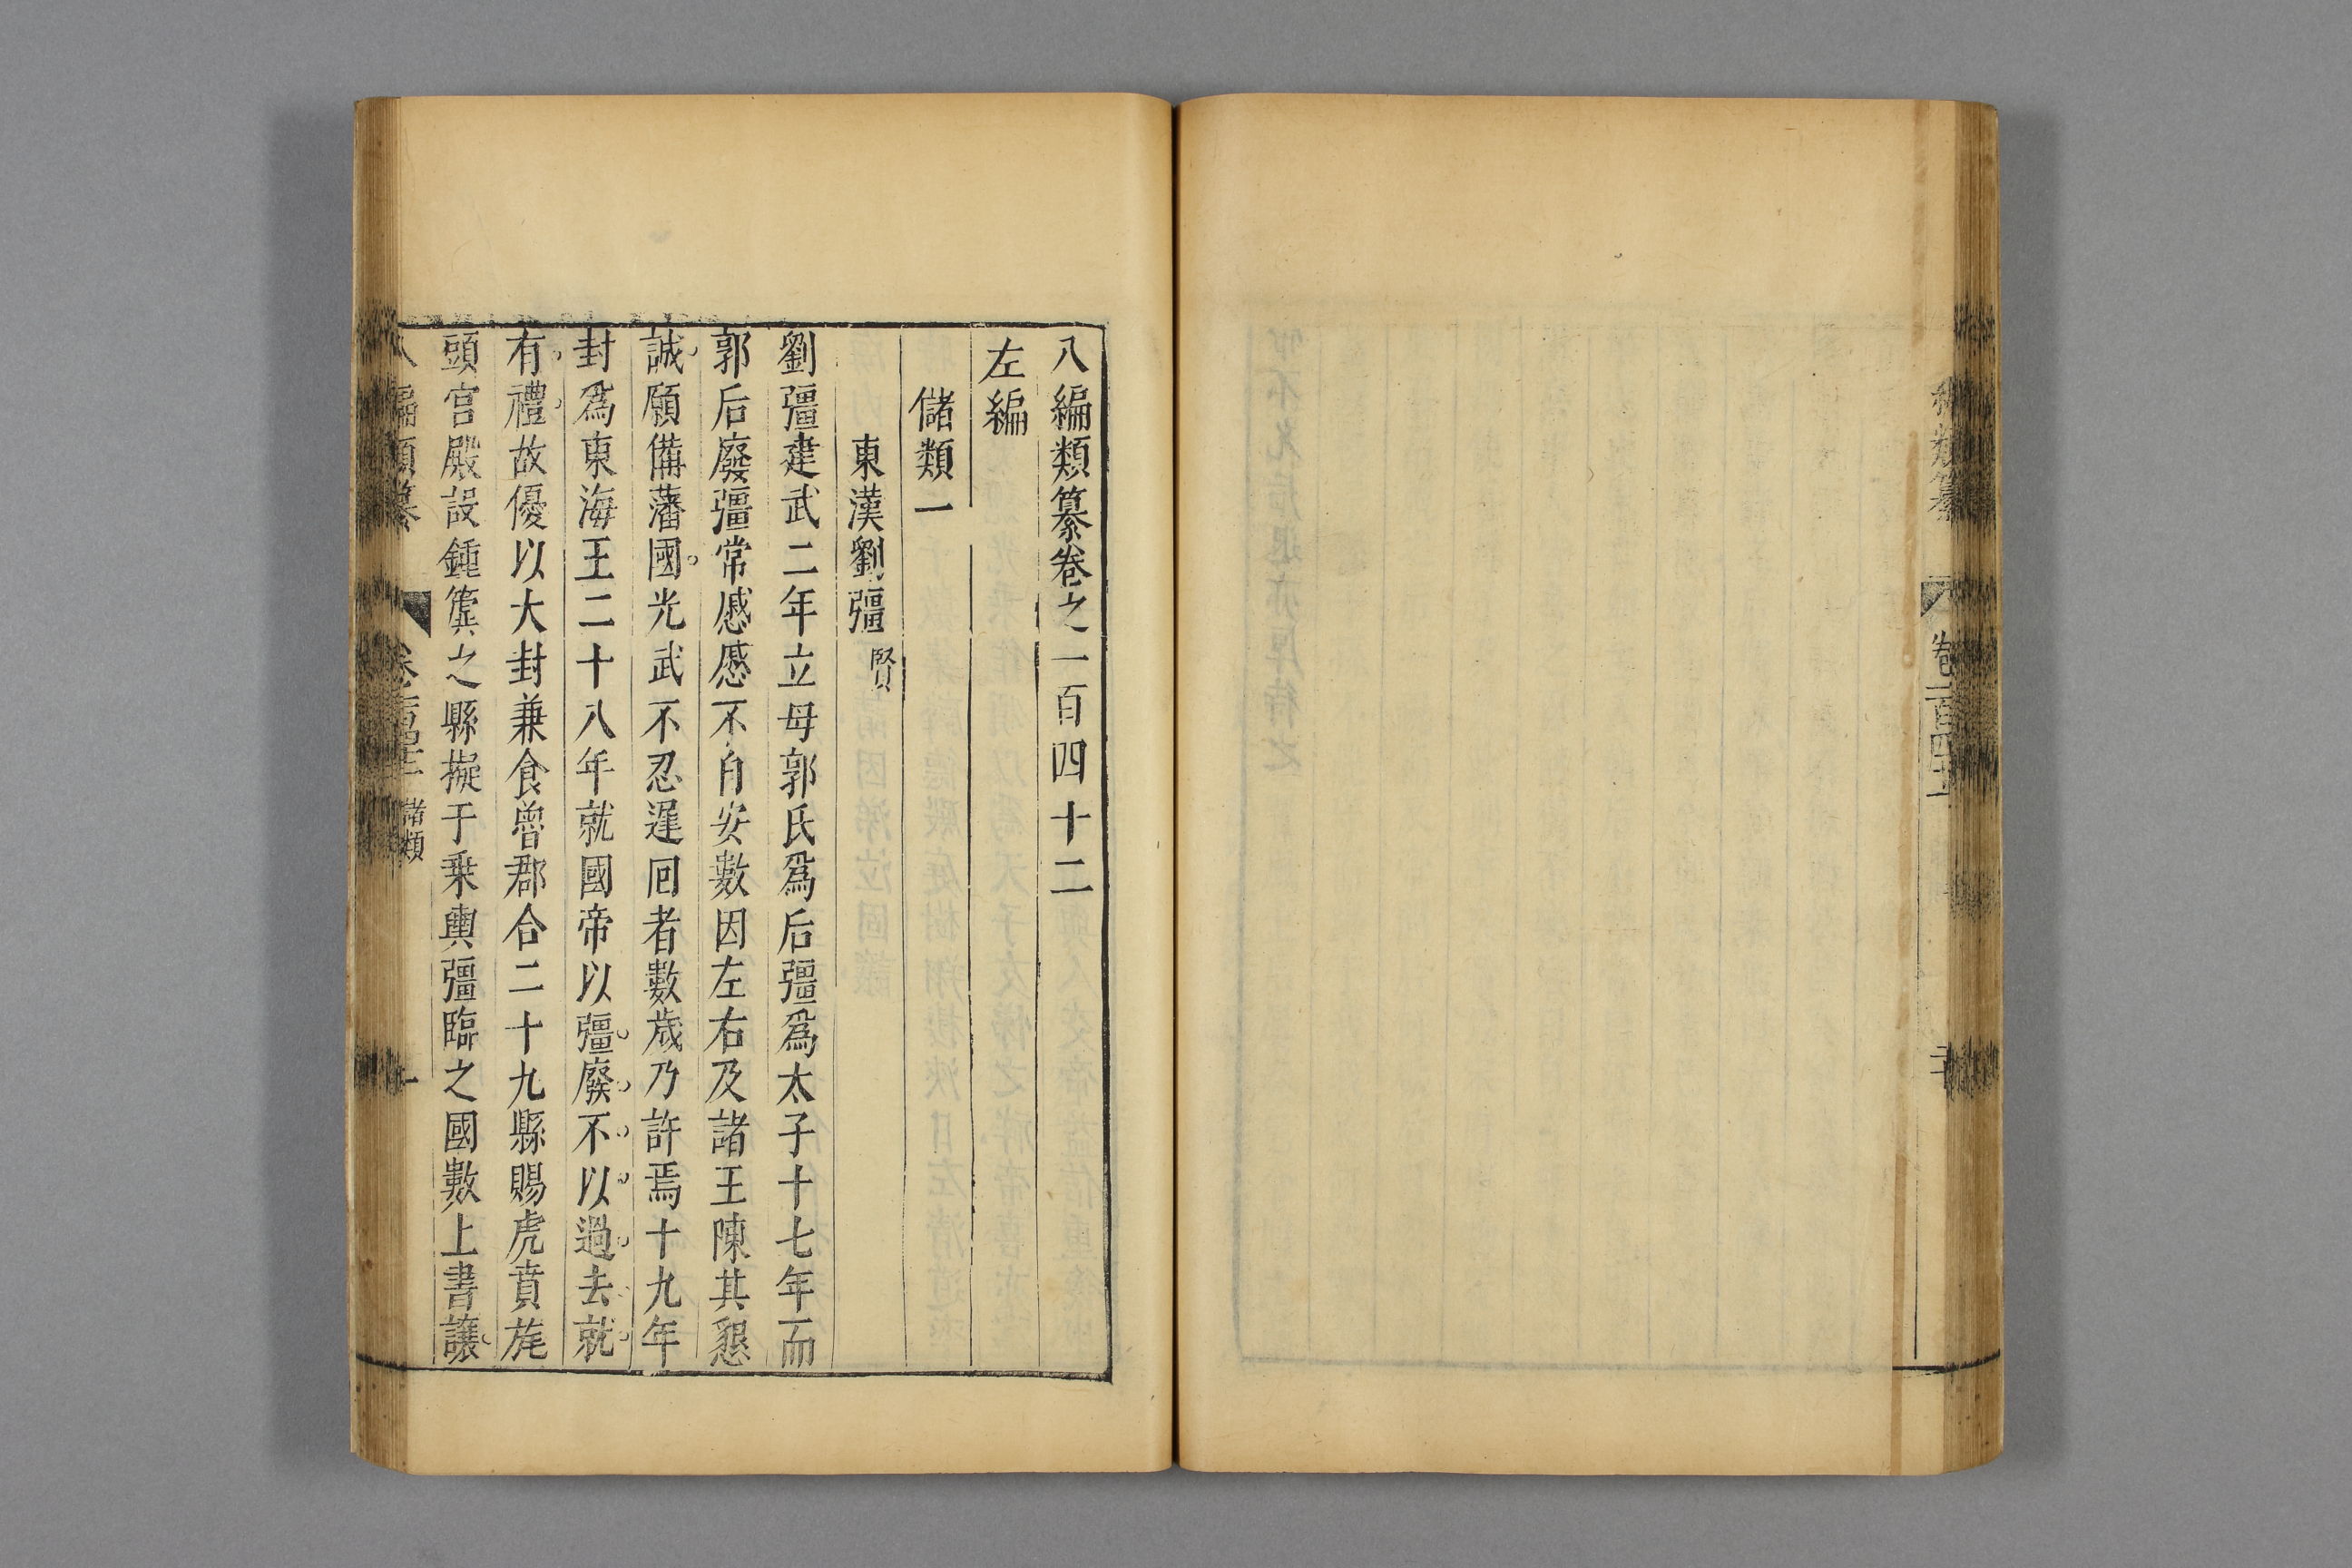 八編類纂卷之一百四十二
左編
儲類一
東漢劉彊賢
劉彊建武二年立母郭氏爲后彊爲太子十七年而
郭后廢彊常慼慼不自安數因左右及諸王陳其懇
誠願備藩國光武不忍遲回者數歲乃許焉十九年
封爲東海王二十八年就國帝以彊廢不以過去就
有禮故優以大封兼食魯郡合二十九縣賜虎賁旄
頭宮殿設鍾簴之縣擬于乗輿彊臨之國數上書讓
八編類纂
儲類
一